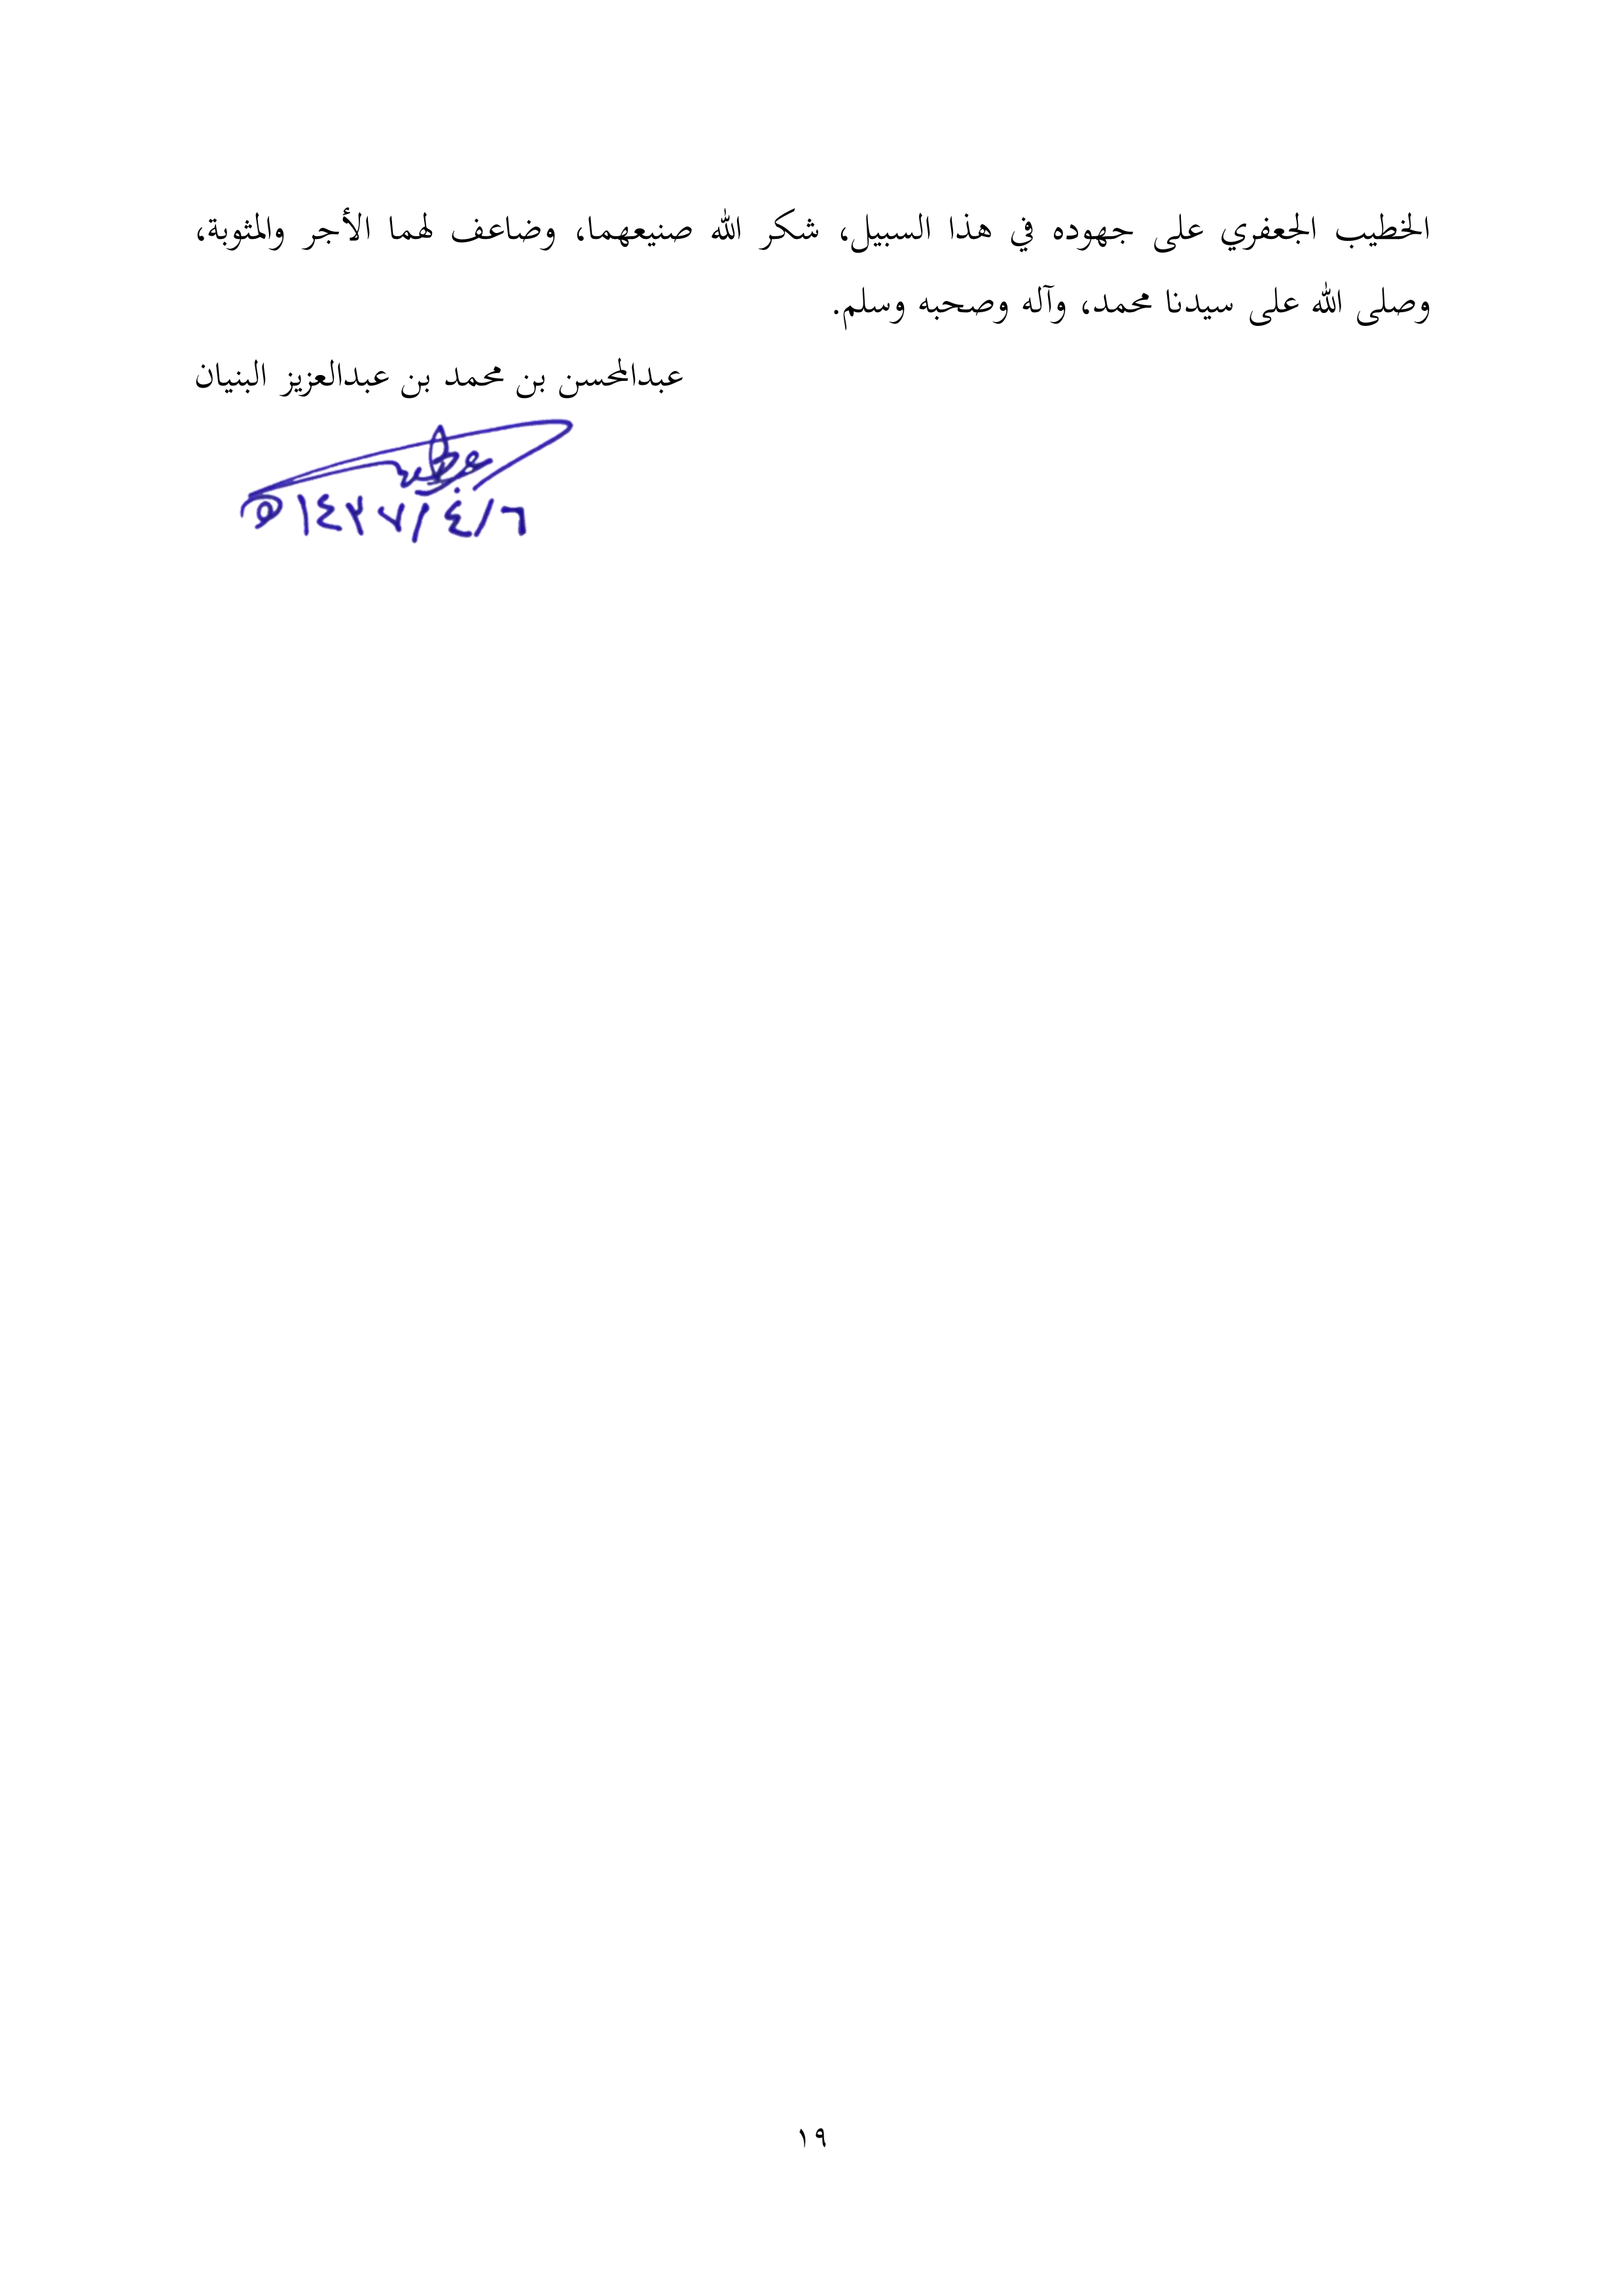 الخطيب الجعفري على جهوده في هذا السبيل، شكر الله صنيعهما، وضاعف لهما الأجر والمثوبة،
وصلى الله على سيدنا محمد، وآله وصحبه وسلم.
عبدالمحسن بن محمد بن عبدالعزيز البنيان
٦/٤/١٤٣٧ه
١٩